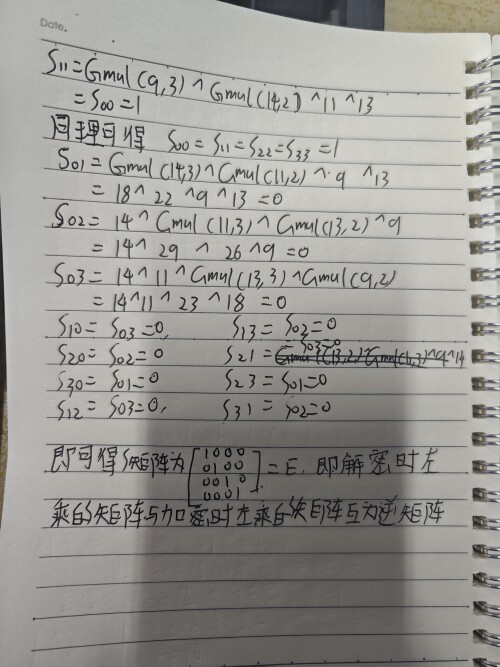 Date.
S11=Gmul(9,3)^Gmul(14,2)^11^13
=S00=1
同理可得 S00=S11=S22=S33=1
S01=Gmul(14,3)^Gmul(11,2)^9^13
=18^22^9^13=0
S02=14^Gmul(11,3)^Gmul(13,2)^9
=14^29^26^9=0
S03=14^11^Gmul(13,3)^Gmul(9,2)
=14^11^23^18=0
S10=S03=0, S13=S02=0
S20=S02=0 S21=S03=0
S30=S01=0 S23=S01=0
S12=S03=0, S31=S02=0
即可得S矩阵为[1000
0100
0010
0001]=E.即解密时左
乘的矩阵与加密时左乘的矩阵互为逆矩阵